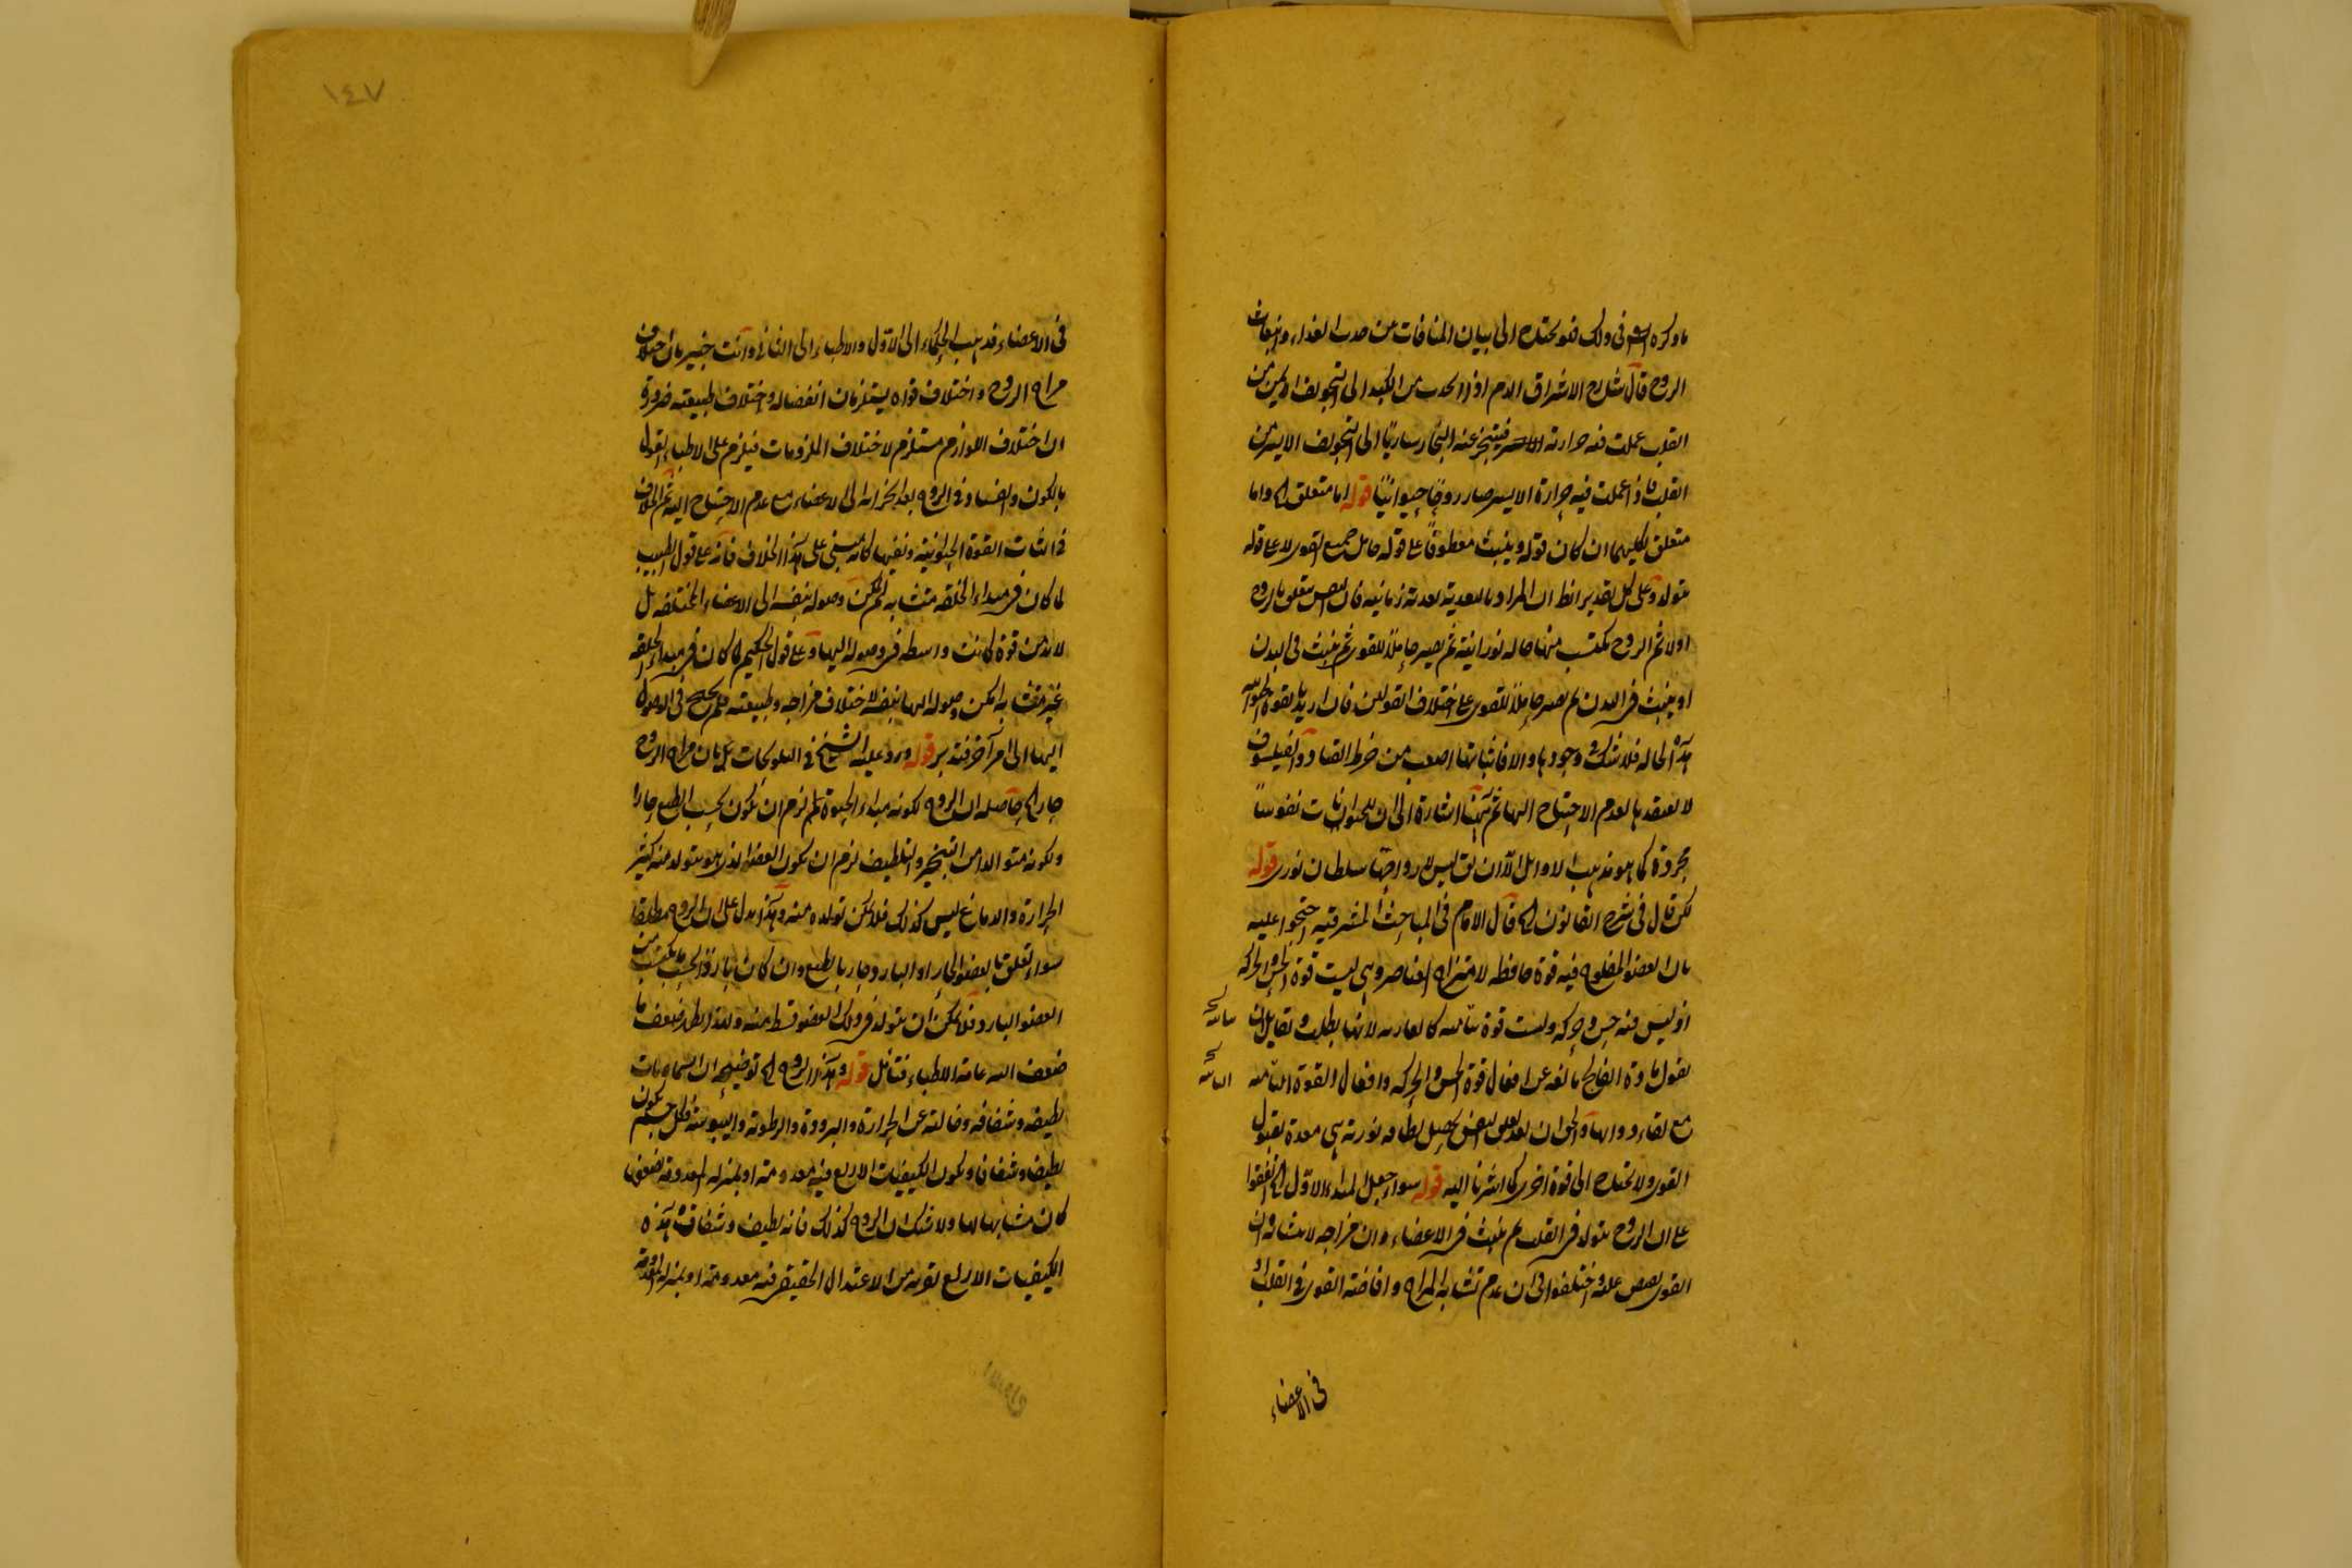 ما ذكره الشر في ذلك فهو يحتاج الى بيان المنافات من جذب الغذاء وانبعاث
الروح قال شارح الاشراق الدم اذا انجذب من الكبد الى التجويف الايمن من
القلب عملت فيه حرارته فيتبخر عنه البخار ساريا الى التجويف الايسر من
القلب فاذا عملت فيه حرارة الايسر صار روحًا حيوانيًا قوله اما متعلق الخ واما
متعلق بكليهما ان كان قوله وينبث معطوفًا على قوله حامل جميع القوى لا على قوله
يتولد وعلى كل تقدير الظ ان المراد بالبعدية بعدية زمانية فان النفس يتعلق بالروح
اولا ثم الروح يكتسب منها حالة نورانية ثم يصير حاملًا للقوى ثم ينبث في البدن
او ينبث في البدن ثم يصير حاملًا للقوى على اختلاف القولين فان اريد بالقوة الحيوانية
هذه الحالة فلا شك في وجودها والا فاثباتها اصعب من خرط القتاد والفيلسوف
لا يعتقد بها لعدم الاحتياج اليها ثم ههنا اشارة الى ان للحيوانات نفوسًا
مجردة كما هو مذهب الاوائل الا ان يق ليس لارواحها سلطان نورى قوله
لكن قال في شرح القانون الخ قال الامام في المباحث المشرقية احتجوا عليه
بان العضو المفلوج فيه قوة حافظة لامتزاج العناصر وهي ليست قوة الحس والحركة
اذ ليس فيه حس وحركة وليست قوة نباتية لانها بطلت ولقايل ان
يقول مادة الفالج مانعة عن افعال قوة الحس والحركة وافعال القوة النباتية
مع بقاء ذواتها والحق ان بعد تعلق النفس يحصل لطافة نورية هي معدة لقبول
القوى ولا يحتاج الى قوة اخرى كما اشرنا اليه قوله سواء جعل المبداء الاول الخ اتفقوا
على ان الروح يتولد في القلب ثم ينبث في الاعضاء وان مزاجه لا يتشابه وان
القوى يفيض عليه واختلفوا في ان عدم تشابه المزاج وافاضة القوى في القلب او
في الاعضاء
١٤٧
في الاعضاء فذهب الحكماء الى الاول والاطباء الى الثاني وانت خبير بان اختلاف
مزاج الروح واختلاف قواه يستلزمان انفصاله واختلاف طبيعته ضرورة
ان اختلاف اللوازم مستلزم لاختلاف الملزومات فيلزم على الاطباء القول
بالكون والفساد في الروح بعد انجزابه الى الاعضاء مع عدم الاحتياج اليه ثم الخلاف
في اثبات القوة الحيوانية ونفيها كانه مبني على هذا الخلاف فانه على قول الطبيب
لما كان في مبداء الخلقة متشابه لم يمكن وصوله بنفسه الى الاعضاء المختلفة بل
لابد من قوة كانت واسطة في وصوله اليها وعلى قول الحكيم لما كان في مبداء الخلقة
غير متشابه امكن وصوله اليها بنفسه لاختلاف مزاجه وطبيعته فلم يحتج في الوصول
اليها الى امر آخر فتدبر قوله ورد عليه الشيخ في التلويحات بان مزاج الروح
حار الخ حاصله ان الروح لكونه مبداء الحيوة لزم ان يكون بحسب الطبع حارا
ولكونه متوالدا من التبخير والتلطيف لزم ان يكون العضو الذي هو يتولد منه كثير
الحرارة والدماغ ليس كذلك فلا يمكن تولده منه وهذا يدل على ان الروح مطلقا
سواء تعلق بالعضو الحار او البارد حار بالطبع وان كان باردا بحسب ما يكتسب من
العضو البارد فلا يمكن ان يتولد في ذلك العضو قسط منه وبهذا يظهر ضعف ما
ضعف اليه عامة الاطباء فتأمل قوله وهذا الروح الخ توضيحه ان السماويات
لطيفة وشفافة وخالية عن الحرارة والبرودة والرطوبة واليبوسة فكل جسم يكون
لطيف وشفاف ويكون الكيفيات الاربع فيه معدومة او بمنزلة المعدومة
كان مشابها لها ولا شك ان الروح كذلك فانه لطيف وشفاف وهذه
الكيفيات الاربع لقربه من الاعتدال الحقيقي فيه معدومة او بمنزلة المعدومة